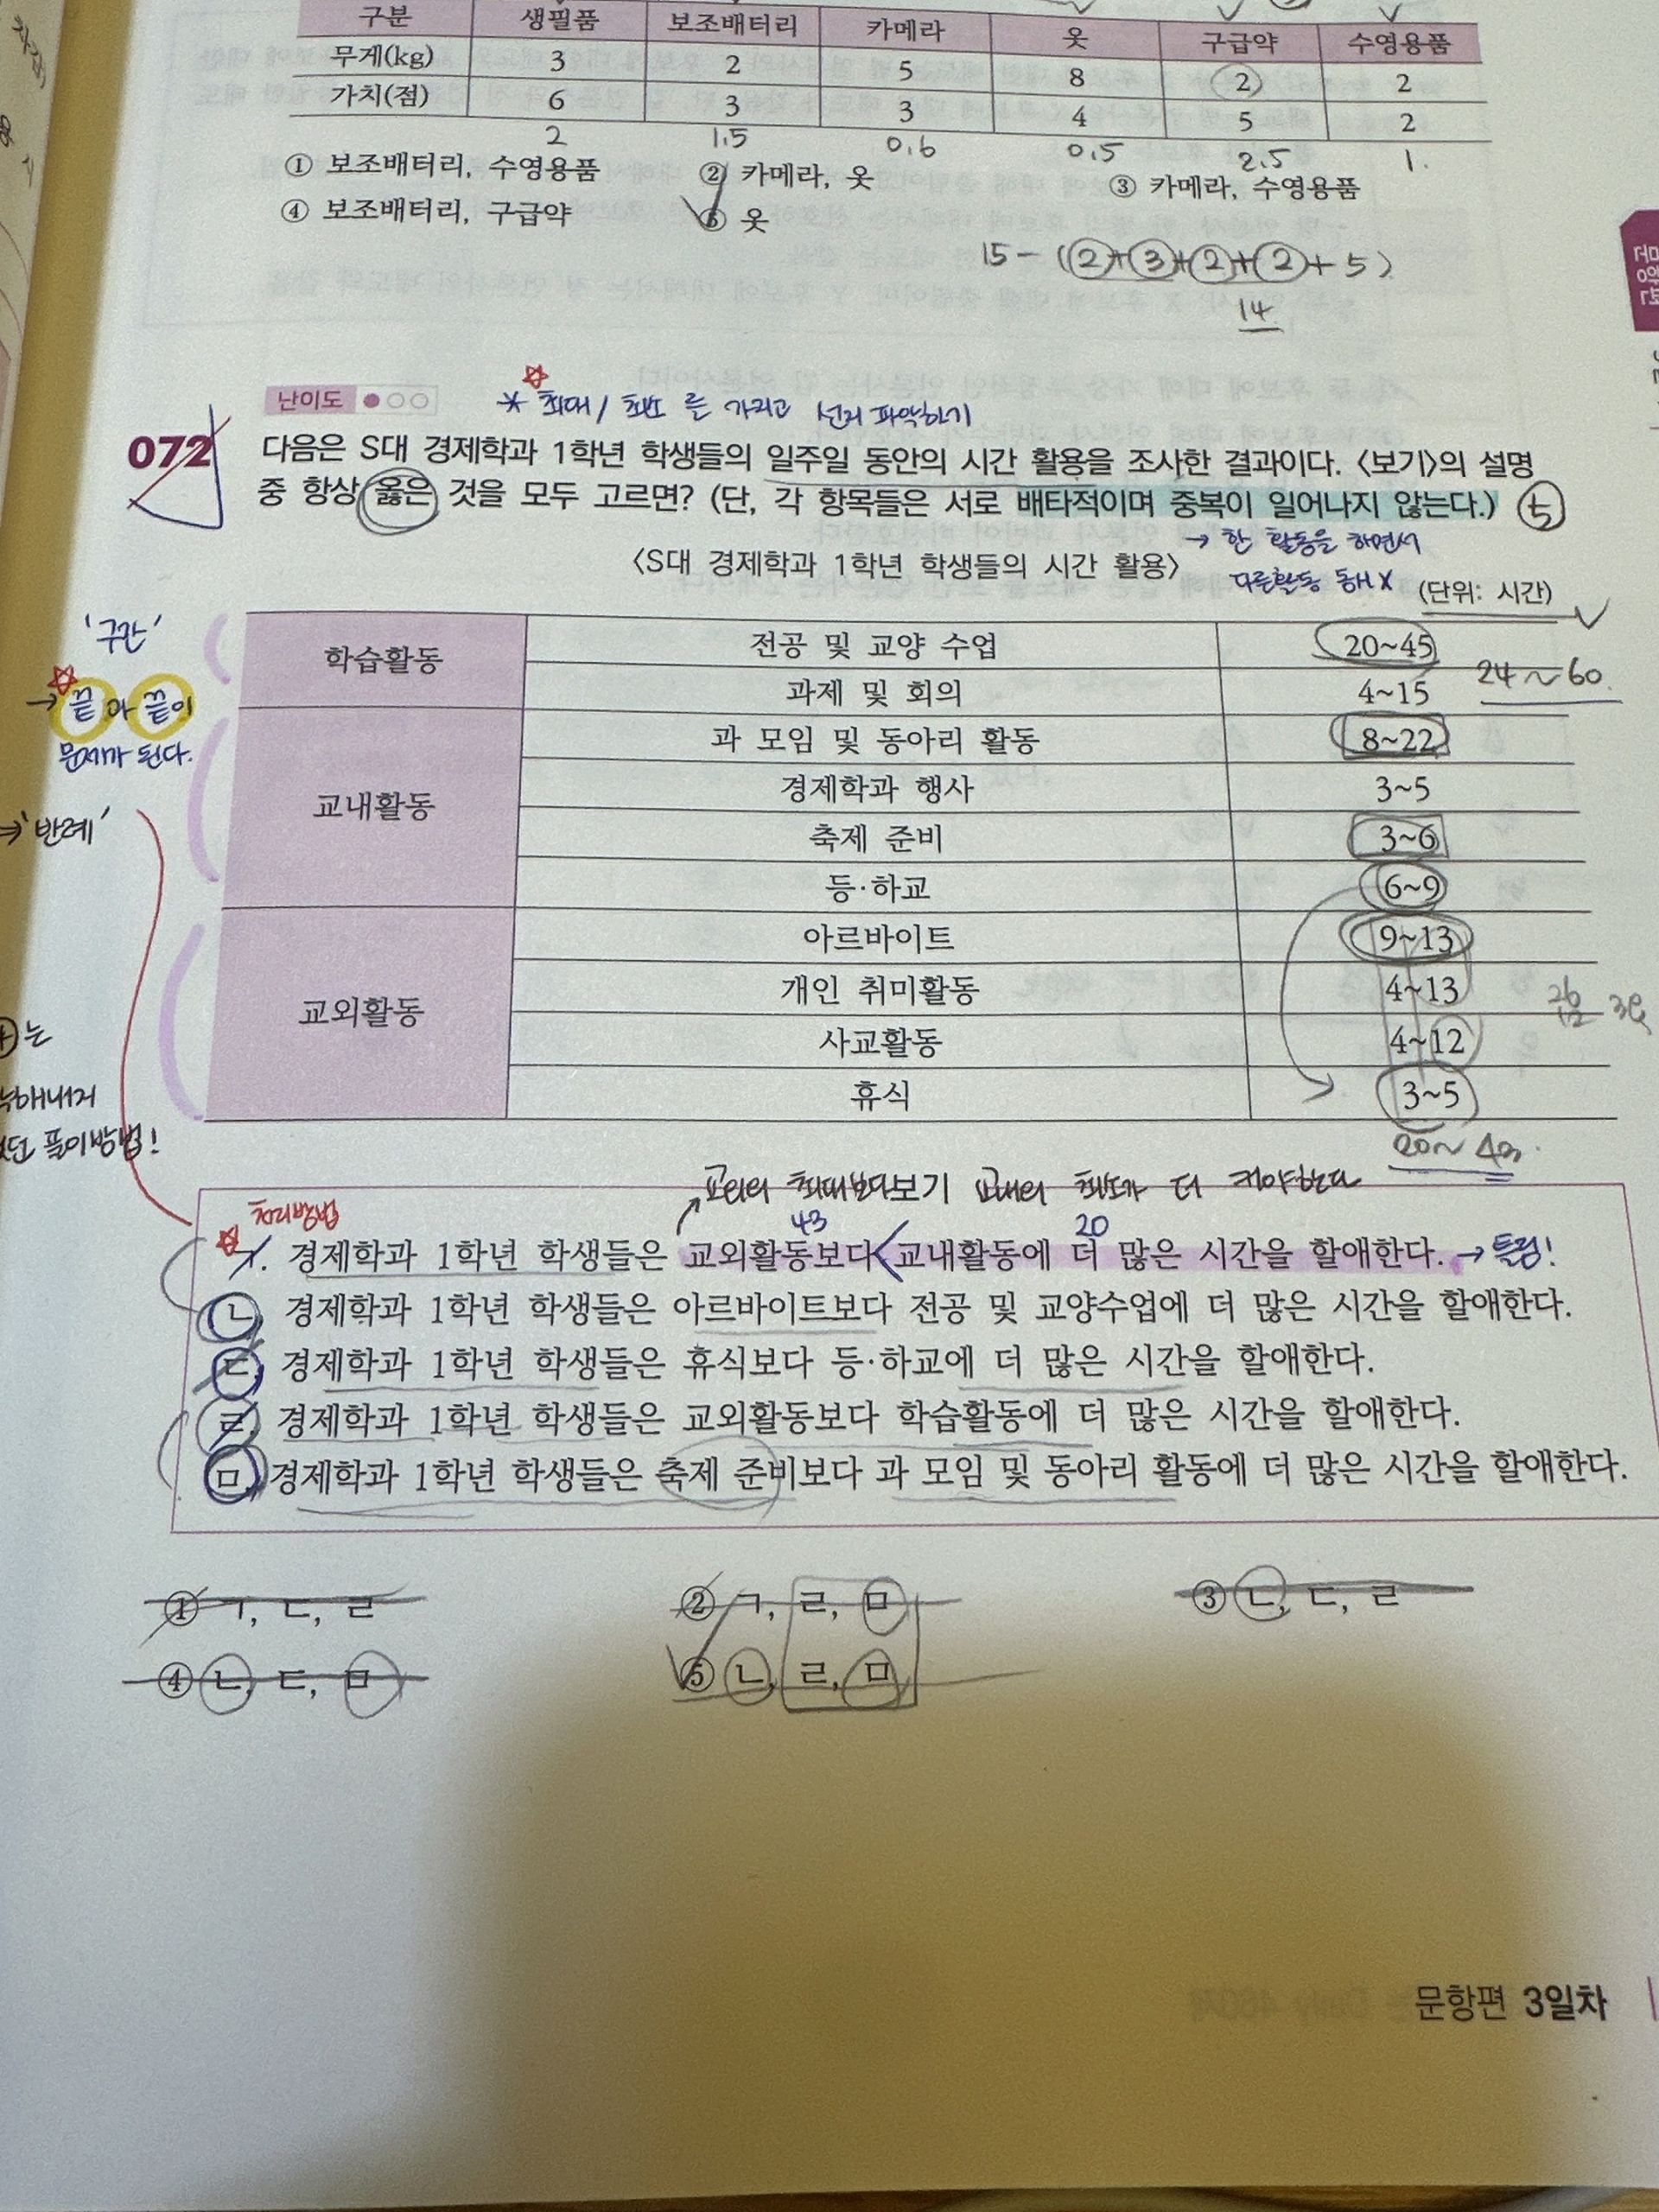 구분 생필품 보조배터리 카메라 옷 구급약 수영용품
무게(kg) 3 2 5 8 2 2
가치(점) 6 3 3 4 5 2
2 1.5 0.6 0.5 2.5 1.
① 보조배터리, 수영용품 ② 카메라, 옷 ③ 카메라, 수영용품
④ 보조배터리, 구급약 ⑤ 옷
15 - (2+3+2+2+5)
14
난이도
* 최대/최소 를 가리고 선지 파악하기
072 다음은 S대 경제학과 1학년 학생들의 일주일 동안의 시간 활용을 조사한 결과이다. 〈보기〉의 설명
중 항상 옳은 것을 모두 고르면? (단, 각 항목들은 서로 배타적이며 중복이 일어나지 않는다.) ⑤
→ 한 활동을 하면서
다른활동 동시 X
〈S대 경제학과 1학년 학생들의 시간 활용〉
(단위: 시간)
'구간'
→ 끝 과 끝이
문제가 된다.
⇒ '반례'
학습활동 전공 및 교양 수업 20~45
과제 및 회의 4~15
24~60
교내활동 과 모임 및 동아리 활동 8~22
경제학과 행사 3~5
축제 준비 3~6
등·하교 6~9
교외활동 아르바이트 9~13
개인 취미활동 4~13
사교활동 4~12
휴식 3~5
20~43
④는
풀이방법!
보기
교외의 최대보다 교내의 최소가 더 커야한다
처리방법
43 20
ㄱ. 경제학과 1학년 학생들은 교외활동보다 < 교내활동에 더 많은 시간을 할애한다. → 틀림!
ㄴ. 경제학과 1학년 학생들은 아르바이트보다 전공 및 교양수업에 더 많은 시간을 할애한다.
ㄷ. 경제학과 1학년 학생들은 휴식보다 등·하교에 더 많은 시간을 할애한다.
ㄹ. 경제학과 1학년 학생들은 교외활동보다 학습활동에 더 많은 시간을 할애한다.
ㅁ. 경제학과 1학년 학생들은 축제 준비보다 과 모임 및 동아리 활동에 더 많은 시간을 할애한다.
① ㄱ, ㄷ, ㄹ ② ㄱ, ㄹ, ㅁ ③ ㄴ, ㄷ, ㄹ
④ ㄴ, ㄷ, ㅁ ⑤ ㄴ, ㄹ, ㅁ
문항편 3일차